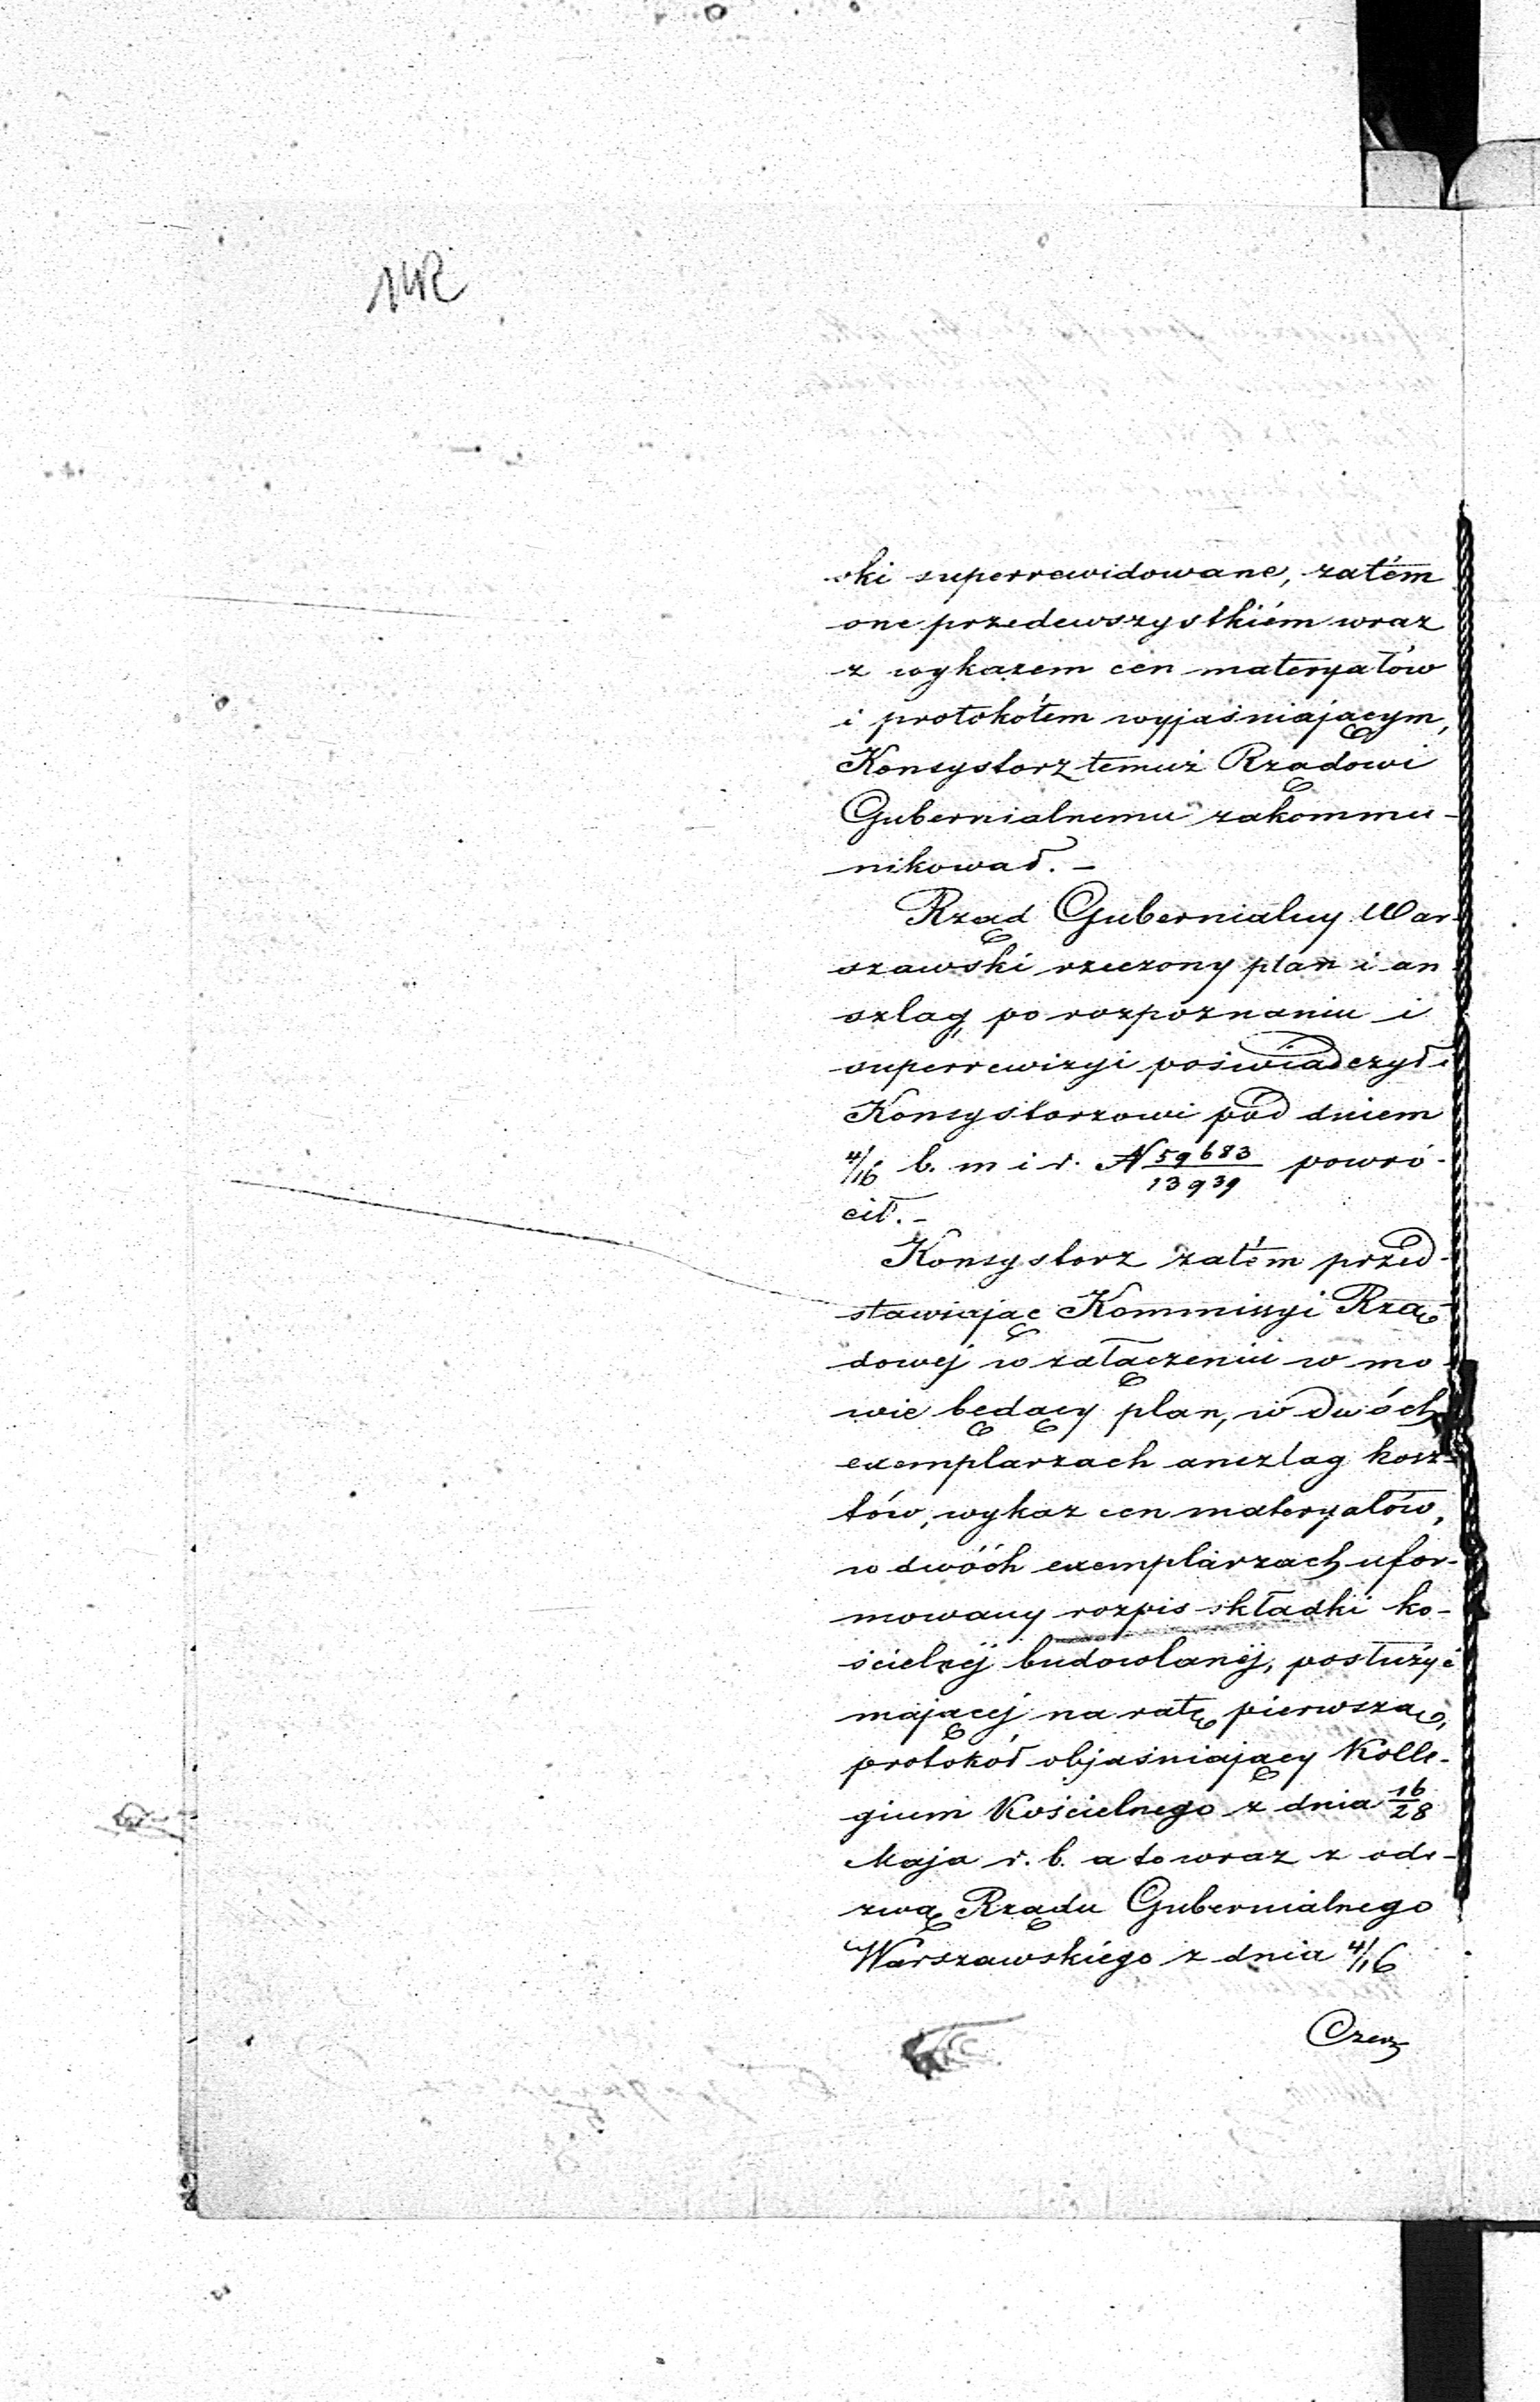 142
ski superrewidowane, zatém
one przedewszystkiém wraz
z wykazem cen materyałów
i protokółem wyjaśniającym,
Konsystorz temuż Rządowi
Gubernialnemu zakommu-
nikował. -
Rząd Gubernialny War-
szawski rzeczony plan i an-
szlag, po rozpoznaniu i
superrewizyi poświadczył i
Konsystorzowi pód dniem
4/16 b. m i r. N 59683/13939 powró-
cił. -
Konsystorz zatém przed-
stawiając Kommissyi Rzą-
dowej w załączeniu w mo-
wie będący plan, w dwóch
exemplarzach anszlag kosz-
tów, wykaz cen materyałów,
w dwóch exemplarzach ufor-
mowany rozpis składki ko-
ścielnéj budowlanéj, posłużyć
mającéj na ratę pierwszą,
protokół objaśniający Kolle-
gium Kościelnego z dnia 16/28
Maja r. b. a to wraz z ode-
zwą Rządu Gubernialnego
Warszawskiego z dnia 4/16